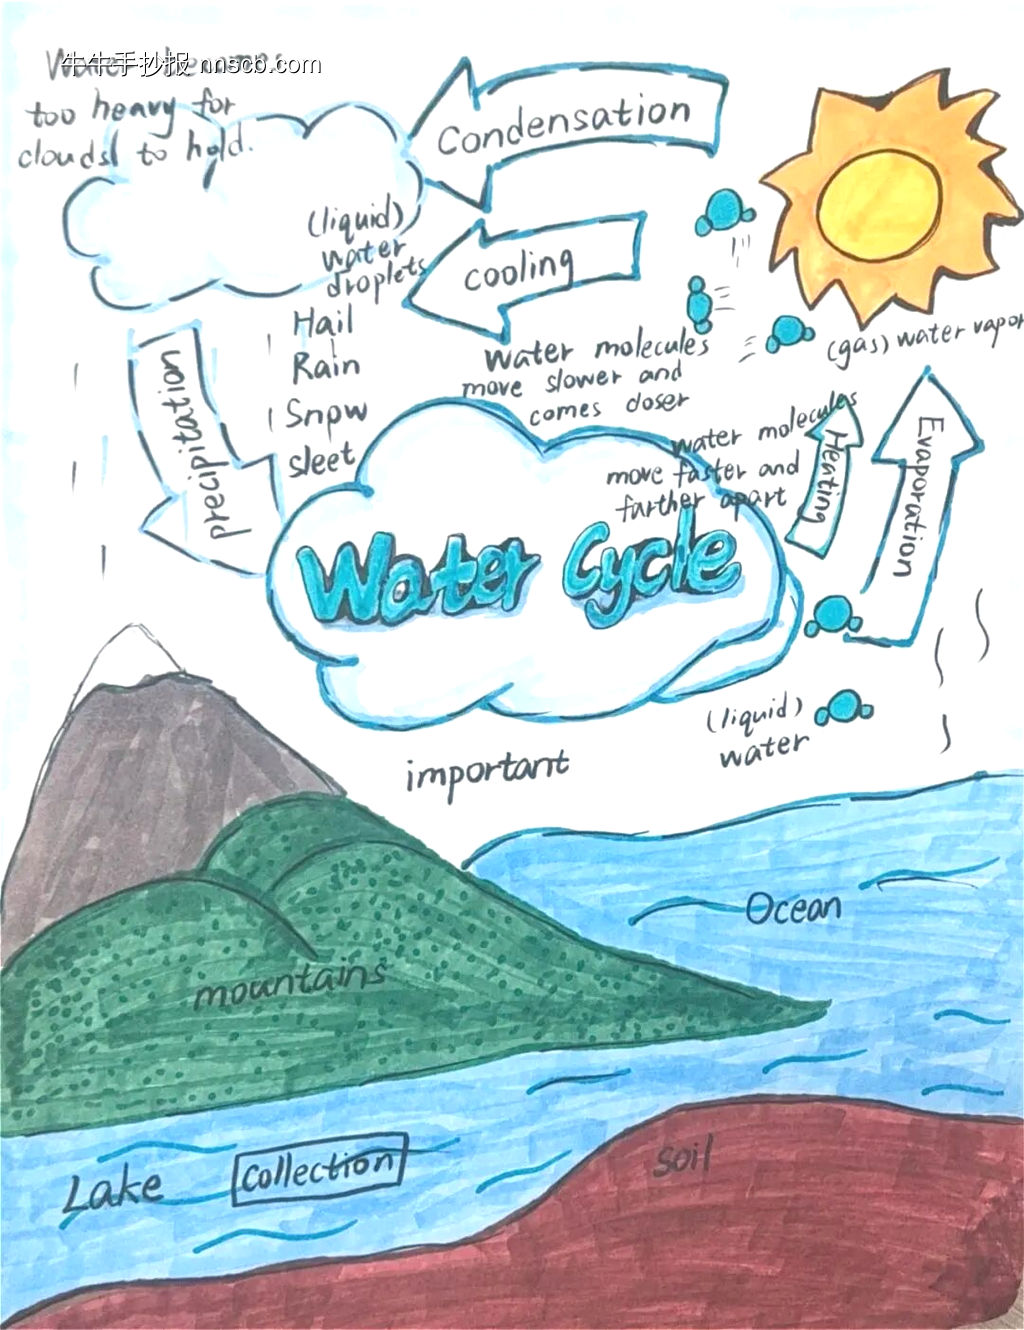 牛牛手抄报 nnscb.com
Water becomes
too heavy for
clouds to hold.
Condensation
(liquid)
water
droplets
cooling
Hail
Rain
Snpw
sleet
precipitation
Water molecules
move slower and
comes closer
(gas) water vapor
water molecules
move faster and
farther apart
Heating
Evaporation
Water Cycle
(liquid)
water
important
Ocean
mountains
Lake
Collection
soil